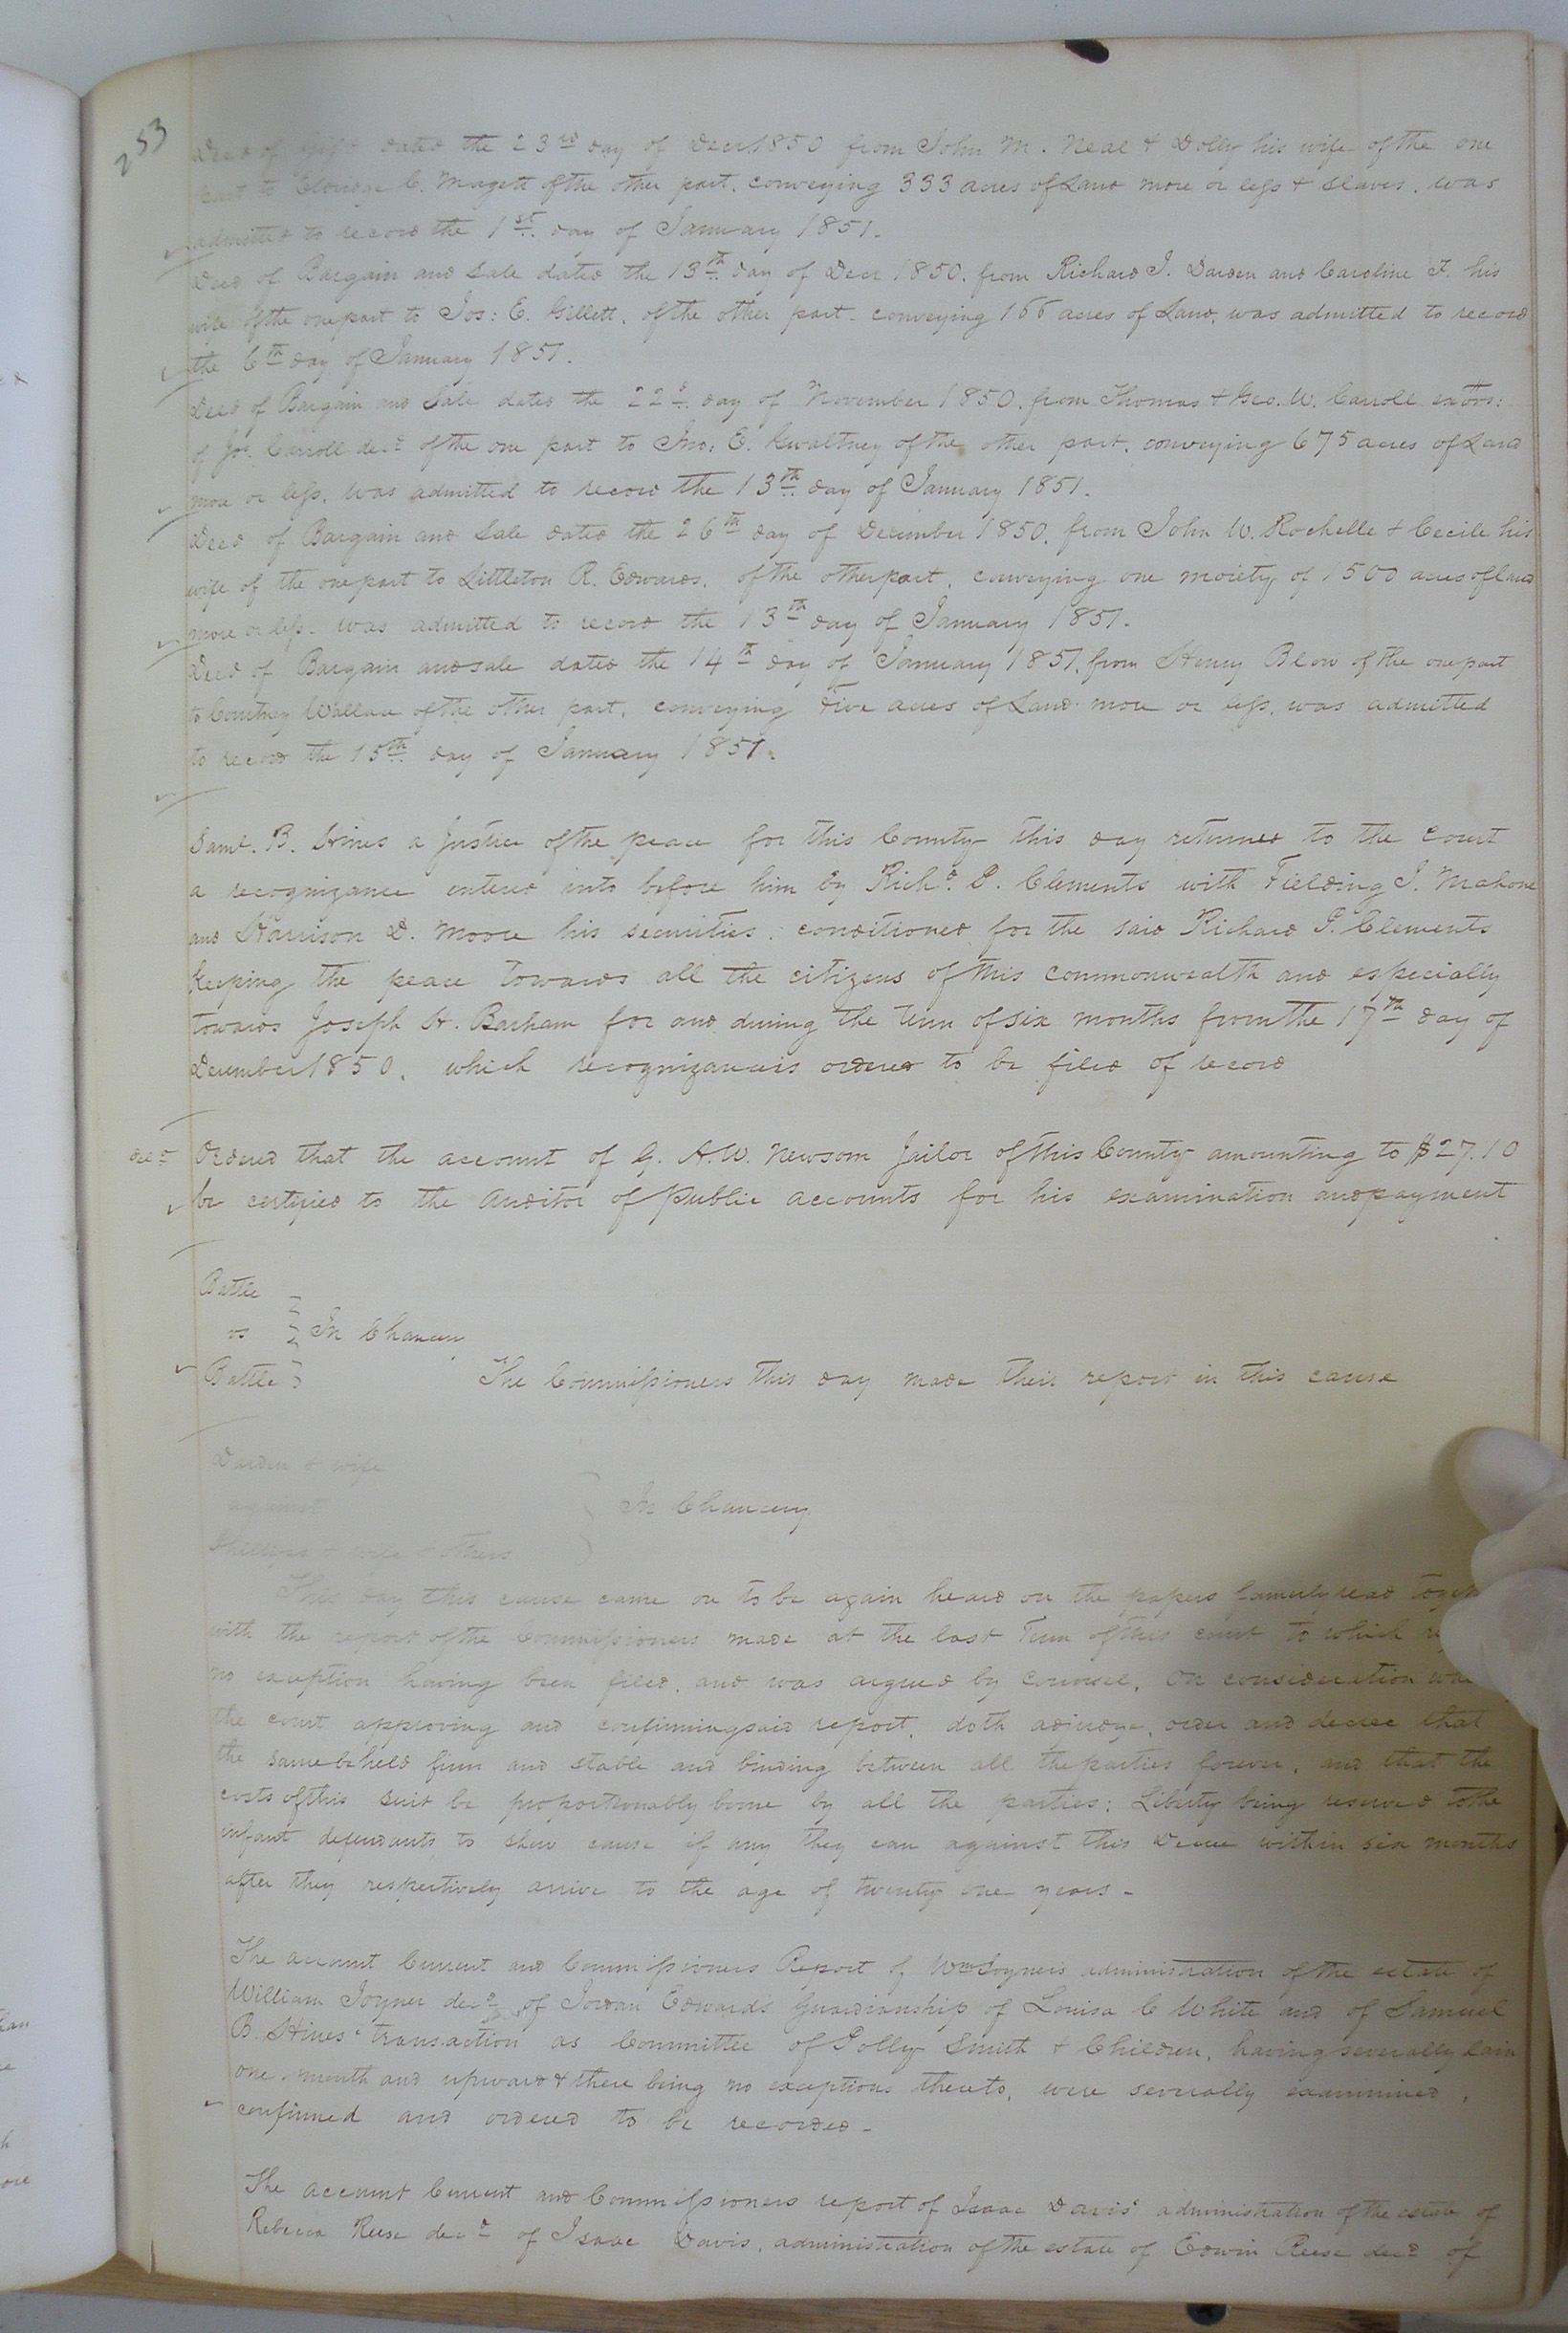 253
Deed of Gift dated the 23rd day of Decr. 1850 from John M. Neal & Dolly his wife of the one
part to Eldridge C. Magett of the other part. conveying 333 acres of Land more or less & slaves. was
admitted to record the 1st. day of January 1851.
Deed of Bargain and Sale dated the 13th day of Decr 1850. from Richard J. Darden and Caroline F. his
wife of the one part to Jos: E. Gillett. of the other part. conveying 166 acres of Land, was admitted to record
the 6th day of January 1851.
Deed of Bargain and Sale dated the 22d. day of November 1850. from Thomas & Geo. W. Carroll exors:
of Jos. Carroll decd of the one part to Jno: E. Gwaltney of the other part. conveying 675 acres of Land
more or less. was admitted to record the 13th. day of January 1851.
Deed of Bargain and Sale dated the 26th day of December 1850. from John W. Rochelle & Cecile his
wife of the one part to Littleton R. Edwards. of the other part. conveying one moiety of 1500 acres of land
more or less. was admitted to record the 13th day of January 1851.
Deed of Bargain and sale dated the 14th day of January 1851. from Henry Blow of the one part
to Courtney Wallace of the other part. conveying Five acres of Land more or less. was admitted
to record the 15th. day of January 1851.
Saml. B. Hines a Justice of the peace for this County this day returned to the Court
a recognizance entered into before him by Richd. P. Clements with Fielding J. Mahone
and Harrison D. Moore his securities. conditioned for the said Richard P. Clements
keeping the peace towards all the citizens of this commonwealth and especially
towards Joseph H. Barham for and during the term of six months from the 17th day of
December 1850. which recognizance is ordered to be filed of record
Ordered that the account of G. A. W. Newsom Jailor of this County amounting to $27.10
be certified to the Auditor of Public accounts for his examination and payment
Battle
vs } In Chancery
Battle
The Commissioners this day made their report in this cause
Darden & wife
against } In Chancery
Phillips & wife & others
This day this cause came on to be again heard on the papers formerly read
with the report of the Commissioners made at the last Term of this court to which
no exception having been filed. and was argued by counsel. On consideration
the court approving and confirming said report. doth adjudge, order and decree that
the same be held firm and stable and binding between all the parties forever. and that the
costs of this suit be proportionably borne by all the parties: Liberty being reserved to the
infant defendants to shew cause if any they can against this Decree within six months
after they respectively arrive to the age of twenty one years -
The account Current and Commissioners Report of Wm Joyner's administration of the estate of
William Joyner decd. of Jordan Edwards Guardianship of Louisa C White and of Samuel
B. Hines' transaction as Committee of Polly Smith & Children. having severally lain
one month and upward & there being no exceptions thereto. were severally examinined,
confirmed and ordered to be recorded -
The account Current and Commissioners report of Isaac Davis' administration of the estate of
Rebecca Reese decd of Isaac Davis, administration of the estate of Edwin Reese decd of